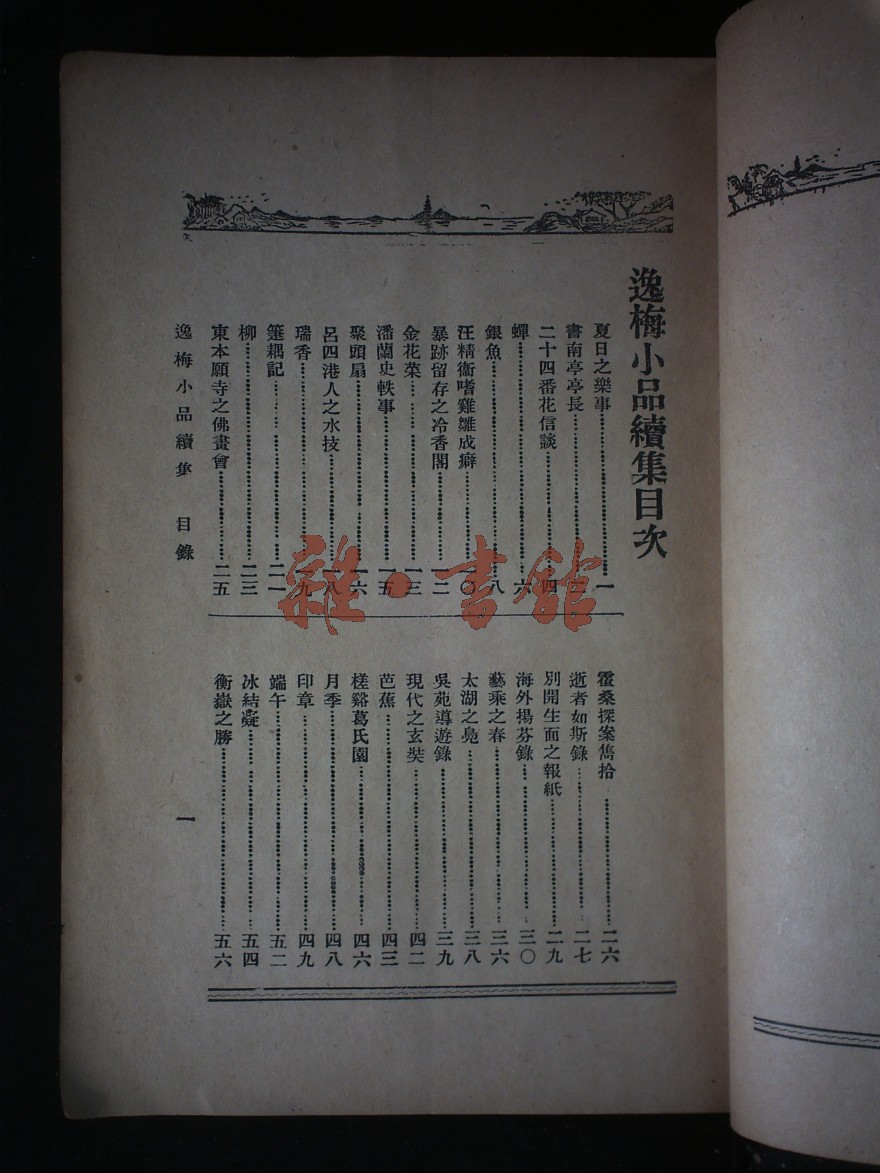 逸梅小品續集目次
夏日之樂事 一
書南亭亭長
二十四番花信談 四
蟬 六
銀魚 八
汪精衞嗜雞雛成癖 一〇
暴跡留存之冷香閣 一二
金花菜 一三
潘蘭史軼事 一五
聚頭扇 一六
呂四港人之水技 一八
瑞香 一九
箑耦記 二一
柳 二三
東本願寺之佛畫會 二五
霍桑探案雋拾 二六
逝者如斯錄 二七
別開生面之報紙 二九
海外揚芬錄 三〇
藝乘之春 三六
太湖之鳧 三八
吳苑導遊錄 三九
現代之玄奘 四二
芭蕉 四三
槎谿葛氏園 四六
月季 四八
印章 四九
端午 五二
冰結凝 五四
衡嶽之勝 五六
逸梅小品續集 目錄
一
雜·書館